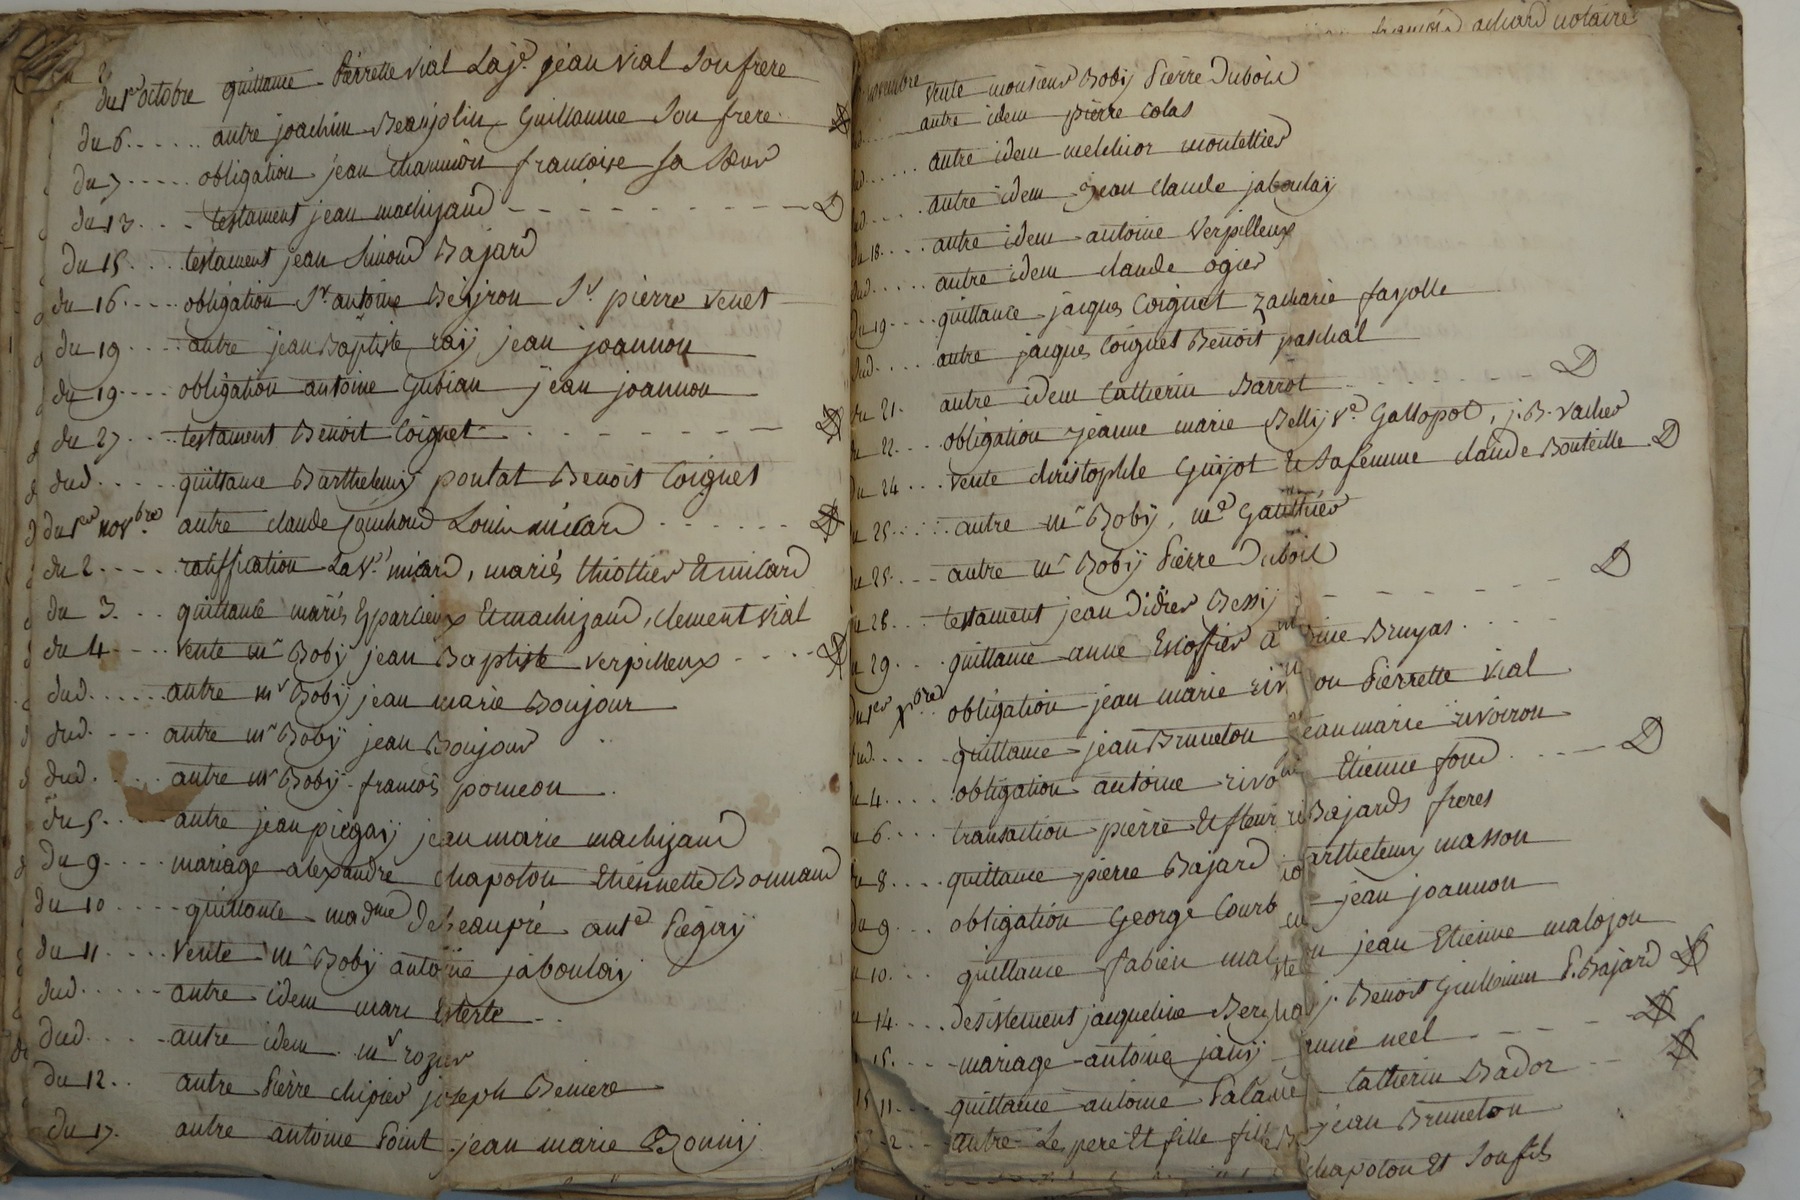 du 1er octobre quittance Pierrette vial Laje. jean vial Son frere
du 6...... autre joachim Beaujolin Guillaume Son frere
du 7..... obligation jean charmion francoise Sa Sœur
du 13... testament jean machizaud D
du 15.... testament jean Simond Bajard
du 16..... obligation Sr. antoine Beijron Sr. pierre venet
du 19.... autre jean Baptiste raÿ jean joannon
du 19.... obligation antoine Gubian jean joannon
du 27.... testament Benoit Coignet
dud...... quittance Barthelemy pontat Benoit Coignet
du 1er novbre autre claude Louis micard
du 2.... ratiffication La Ve. micard, mariés thiollier Et micard
du 3... quittance mariés Esparcieux Et machizaud, clement vial
du 4.... vente mr Bobÿ jean Baptiste verpilleux
dud...... autre mr Bobÿ jean marie Boujour
dud.... autre mr Bobÿ jean Boujour
dud..... autre mr Bobÿ francois pomeon
du 5.... autre jean piegaÿ jean marie machizaud
du 9.... mariage alexandre chapoton Etiennette Bonnand
du 10..... quittance madme de beaupré ante Piegaÿ
du 11.... vente mr Bobÿ antoine jaboulaÿ
dud...... autre idem marc
dud..... autre idem mr rozier
du 12.. autre Pierre chipier joseph Beniere
du 17. autre antoine Point jean marie Bonnÿ
francois achard notaire
novembre vente monsieur Bobÿ Pierre Dubois
autre idem pierre colas
autre idem melchior montellier
autre idem jean claude jaboulaÿ
du 18.... autre idem antoine verpilleux
dud...... autre idem claude ogier
du 19.... quittance jacques Coignet zacharie fayolle
dud...... autre jacques Coignet Benoit paschal
du 21. autre idem Catherin Barrot D
du 22... obligation jeanne marie Bellÿ ve Gallopot, j. B. vacher
du 24... vente christophle Guÿot Et Sa femme claude Bouteille D
25..... autre mr Bobÿ, me Gauthier
du 25.... autre mr Bobÿ Pierre Dubois
28... testament jean Didier Bessÿ D
29... quittance anne Escoffier Bruyas
du 1er xbre obligation jean marie Pierrette vial
dud.... quittance jean Bruneton jean marie rivoiron
4..... obligation antoine Etienne fond D
6.... transaction pierre Et fleuri Bajards freres
8.... quittance pierre Bajard Barthelemy masson
du 9... obligation George jean joannon
10.... quittance fabien jean Etienne malozon
14.... desistement jacqueline j. Benoit Guillaume P. Bajard
15.... mariage antoine janÿ anne neel
11.... quittance antoine Catherin Bador
autre Le pere Et fille jean Bruneton
chapoton Et Son fils